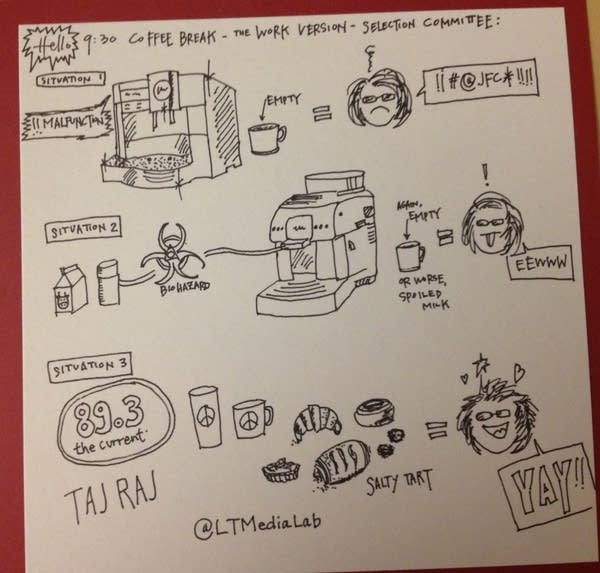 Hello
9:30 COFFEE BREAK - THE WORK VERSION - SELECTION COMMITTEE:
SITUATION 1
!! MALFUNCTION
EMPTY
=
!!#@JFC*!!!!
SITUATION 2
BIOHAZARD
AGAIN, EMPTY
OR WORSE,
SPOILED
MILK
=
!
EEWWW
SITUATION 3
89.3
the current.
TAJ RAJ
SALTY TART
=
YAY!!
@LTMediaLab